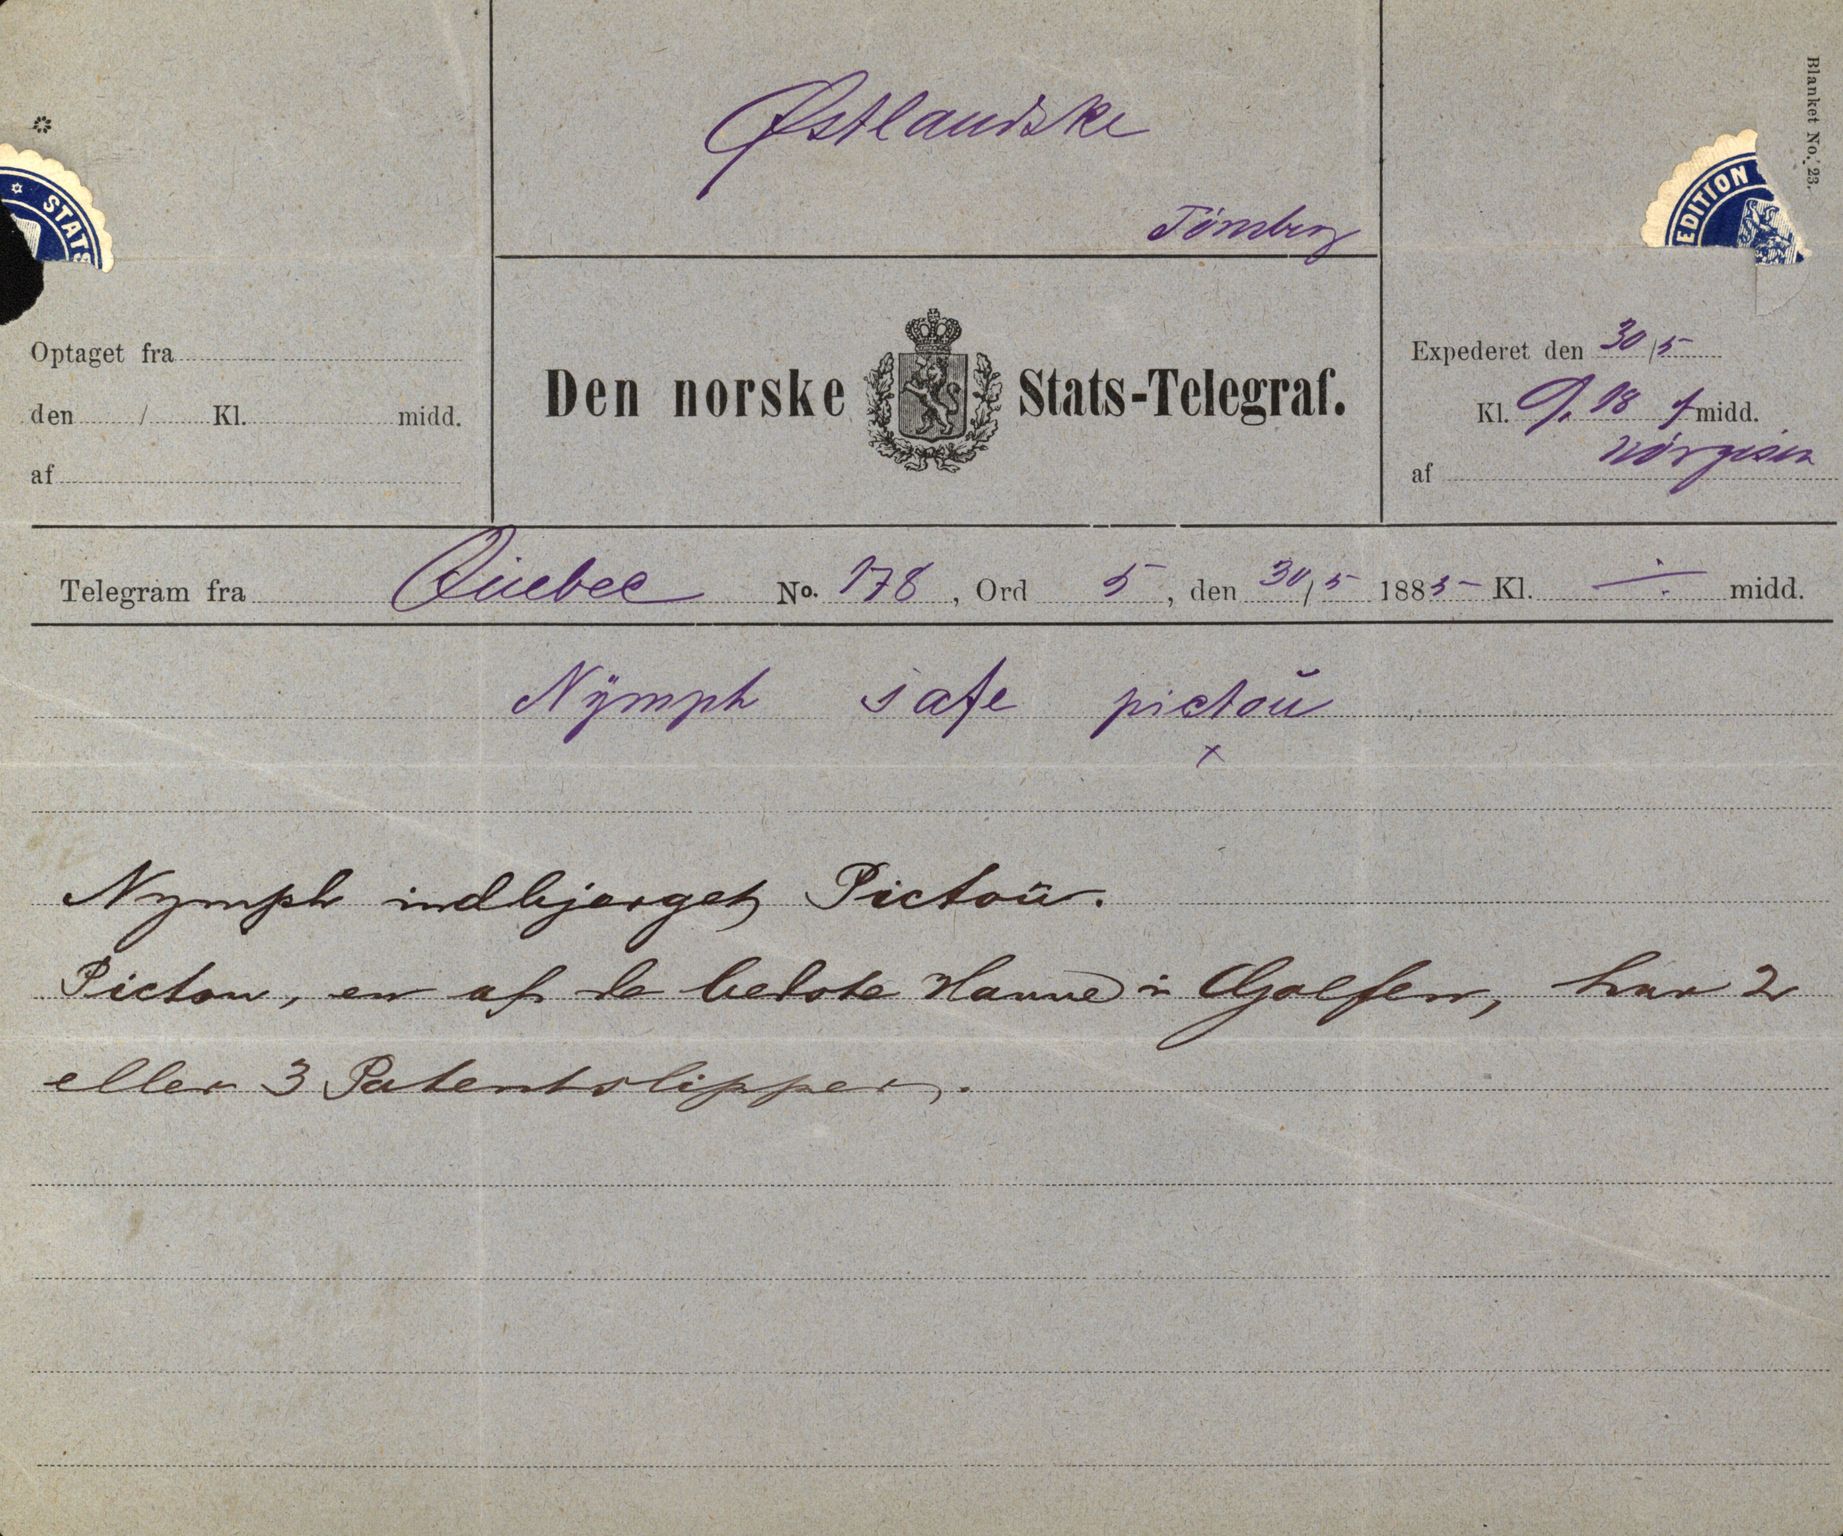 Blanket No. 23.
Østlandske
Tønsberg
STATS
EDITION
Optaget fra
den / Kl. midd.
af
Den norske Stats-Telegraf.
Expederet den 30/5
Kl. 9.18 f midd.
af
Telegram fra Quebec No. 178, Ord 5, den 30/5 1885 Kl. ÷ midd.
Nÿmph safe pictoŭ
x
Nymph indbjerget Pictoŭ.
Pictou, en af de bedste Havne i Golfen, har 2
eller 3 Patentslipper.